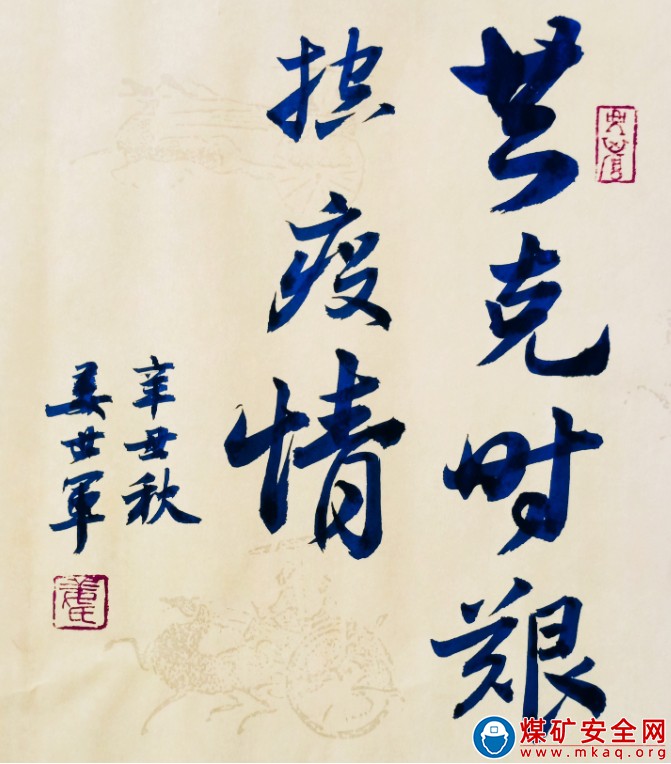 共克时艰
控疫情
辛丑秋
姜世军
煤矿安全网
www.mkaq.org